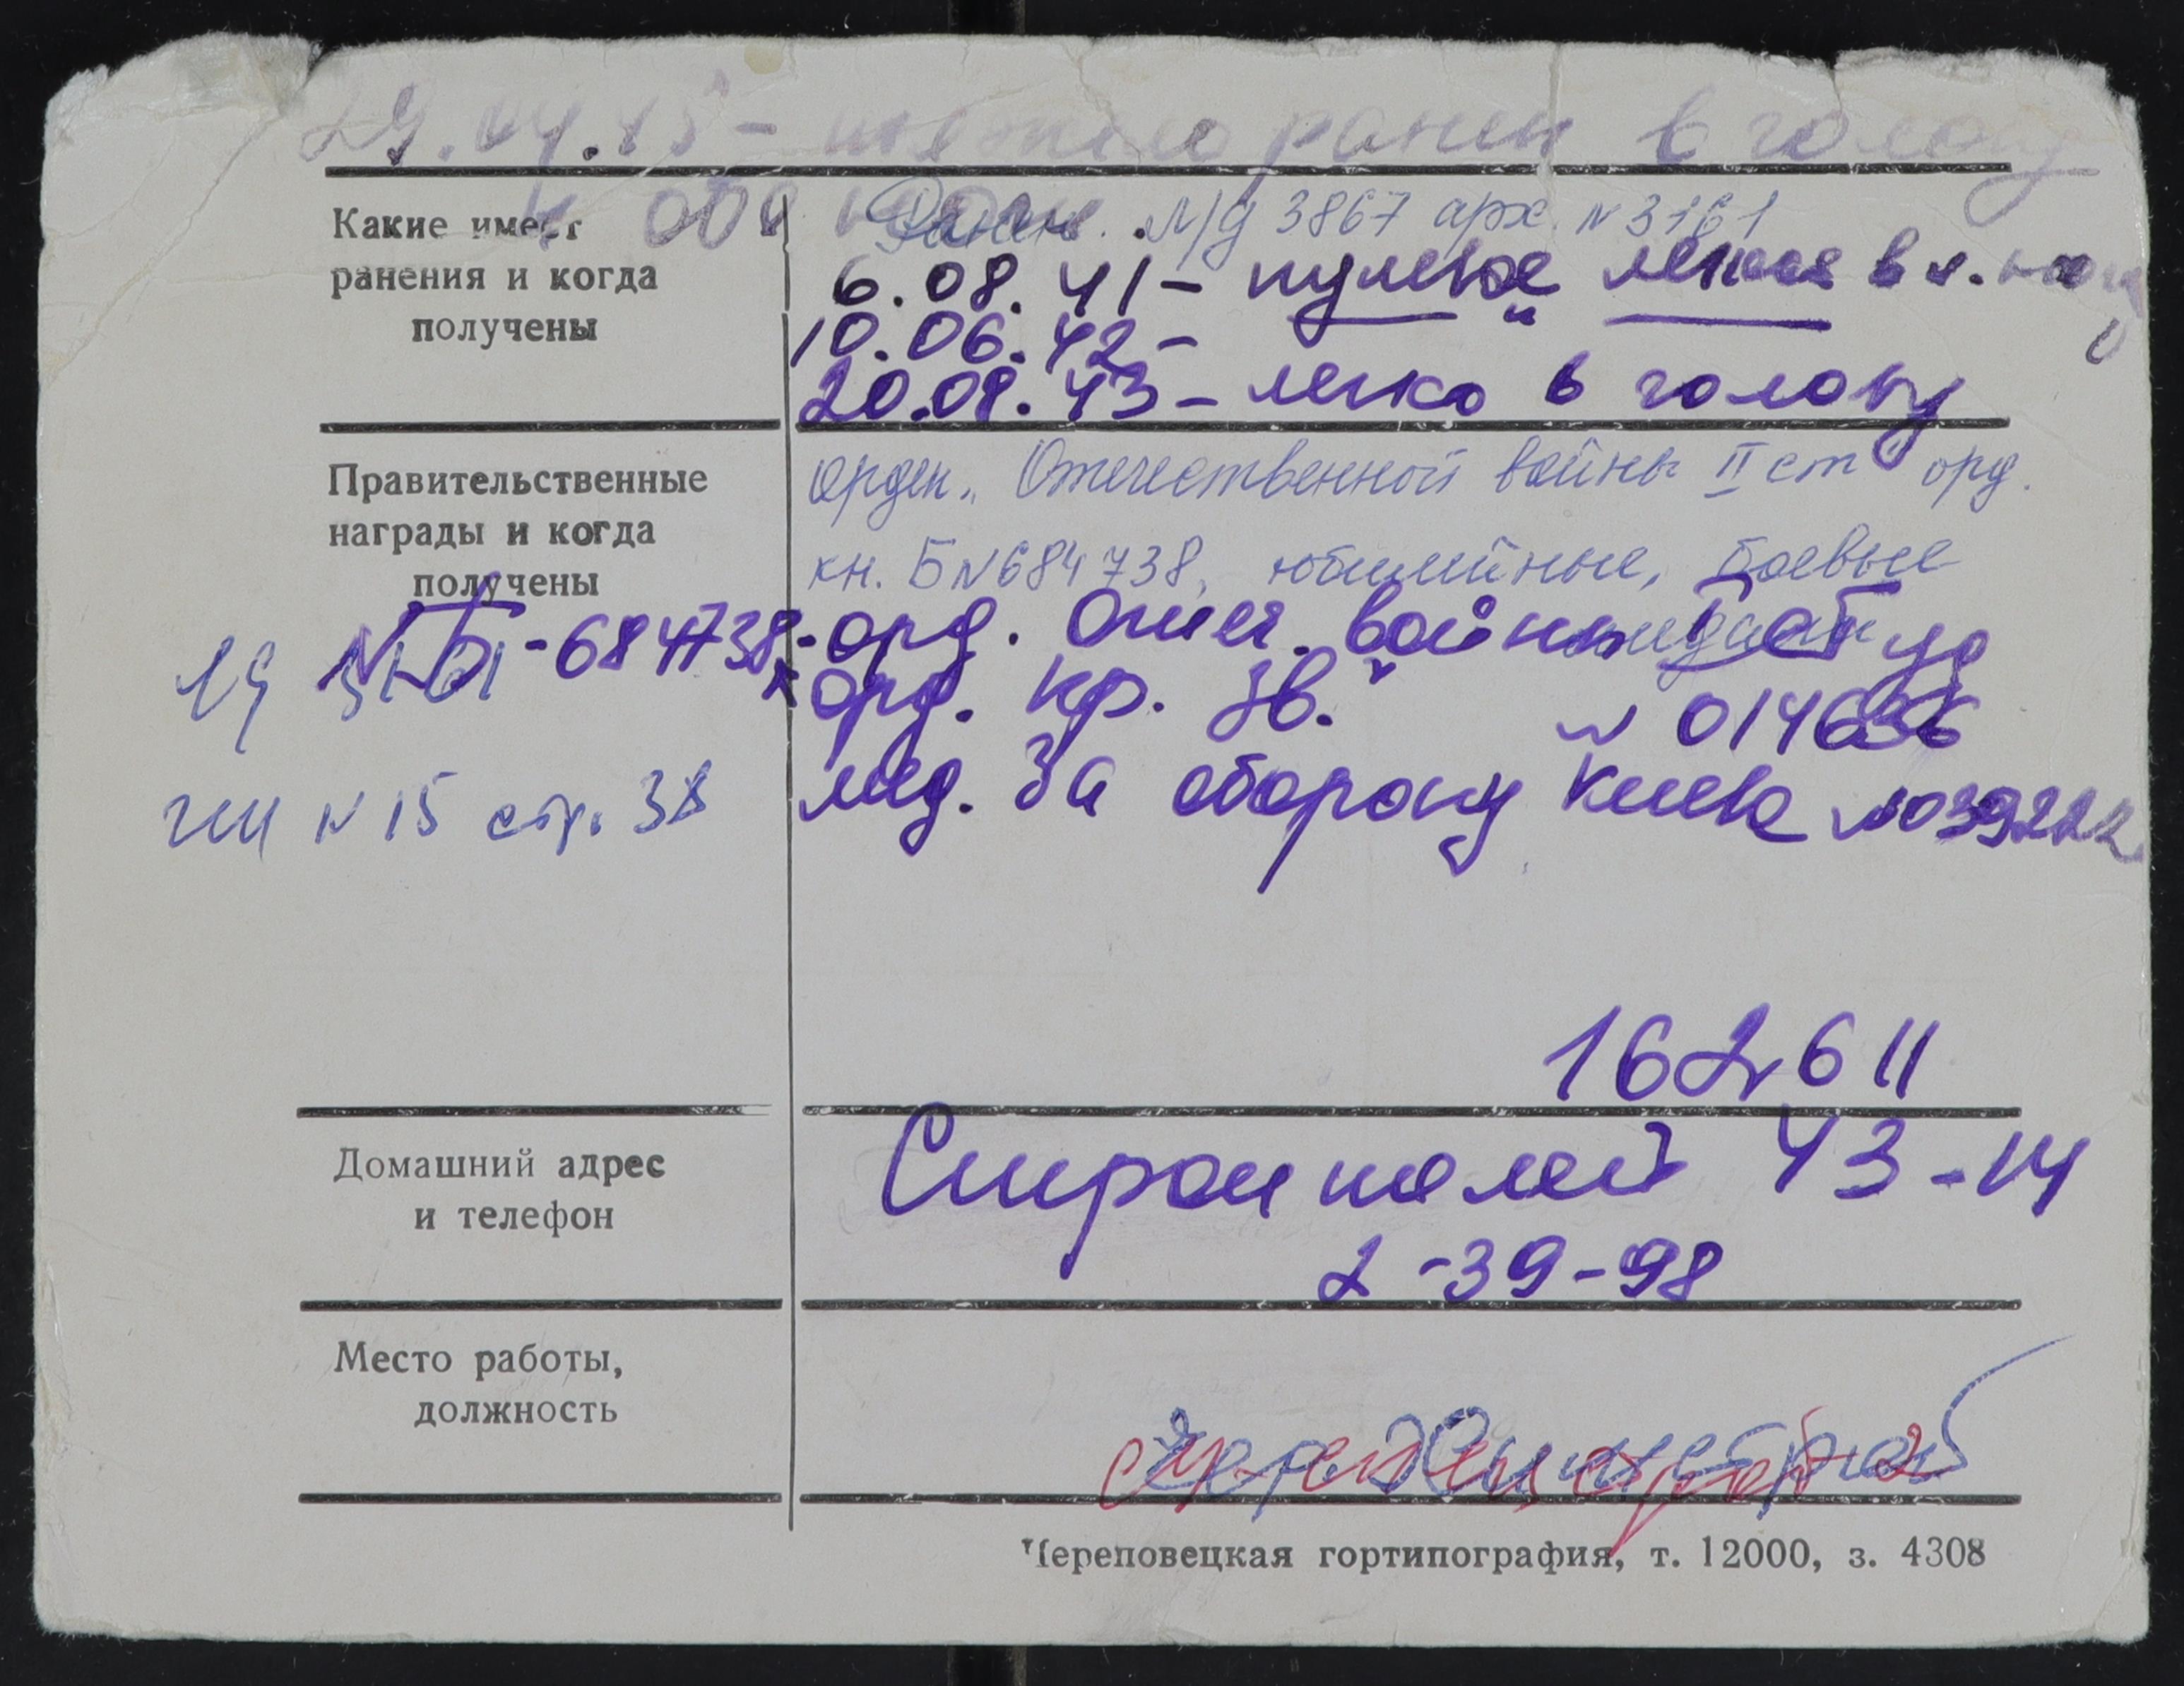 29.04.45 - тяжело ранен в голову
Какие имеет
ранения и когда
получены
Ранен. М/д 3867 арх. N 3161
6.08.41 - пулевое легкое в л. ногу
10.06.42 - "
20.08.43 - легко в голову
Правительственные
награды и когда
получены
Орден. Отечественной войны II ст орд.
кн. Б N 684738, юбилейные, боевые
N Б - 684738 - орд. Отеч. войны
орд. Кр. Зв. N 014636
мед. За оборону Киева N 039222
N 15 стр. 38
162611
Домашний адрес
и телефон
Строителей 43-14
2-39-98
Место работы,
должность
Череповецкая гортипография, т. 12000, з. 4308